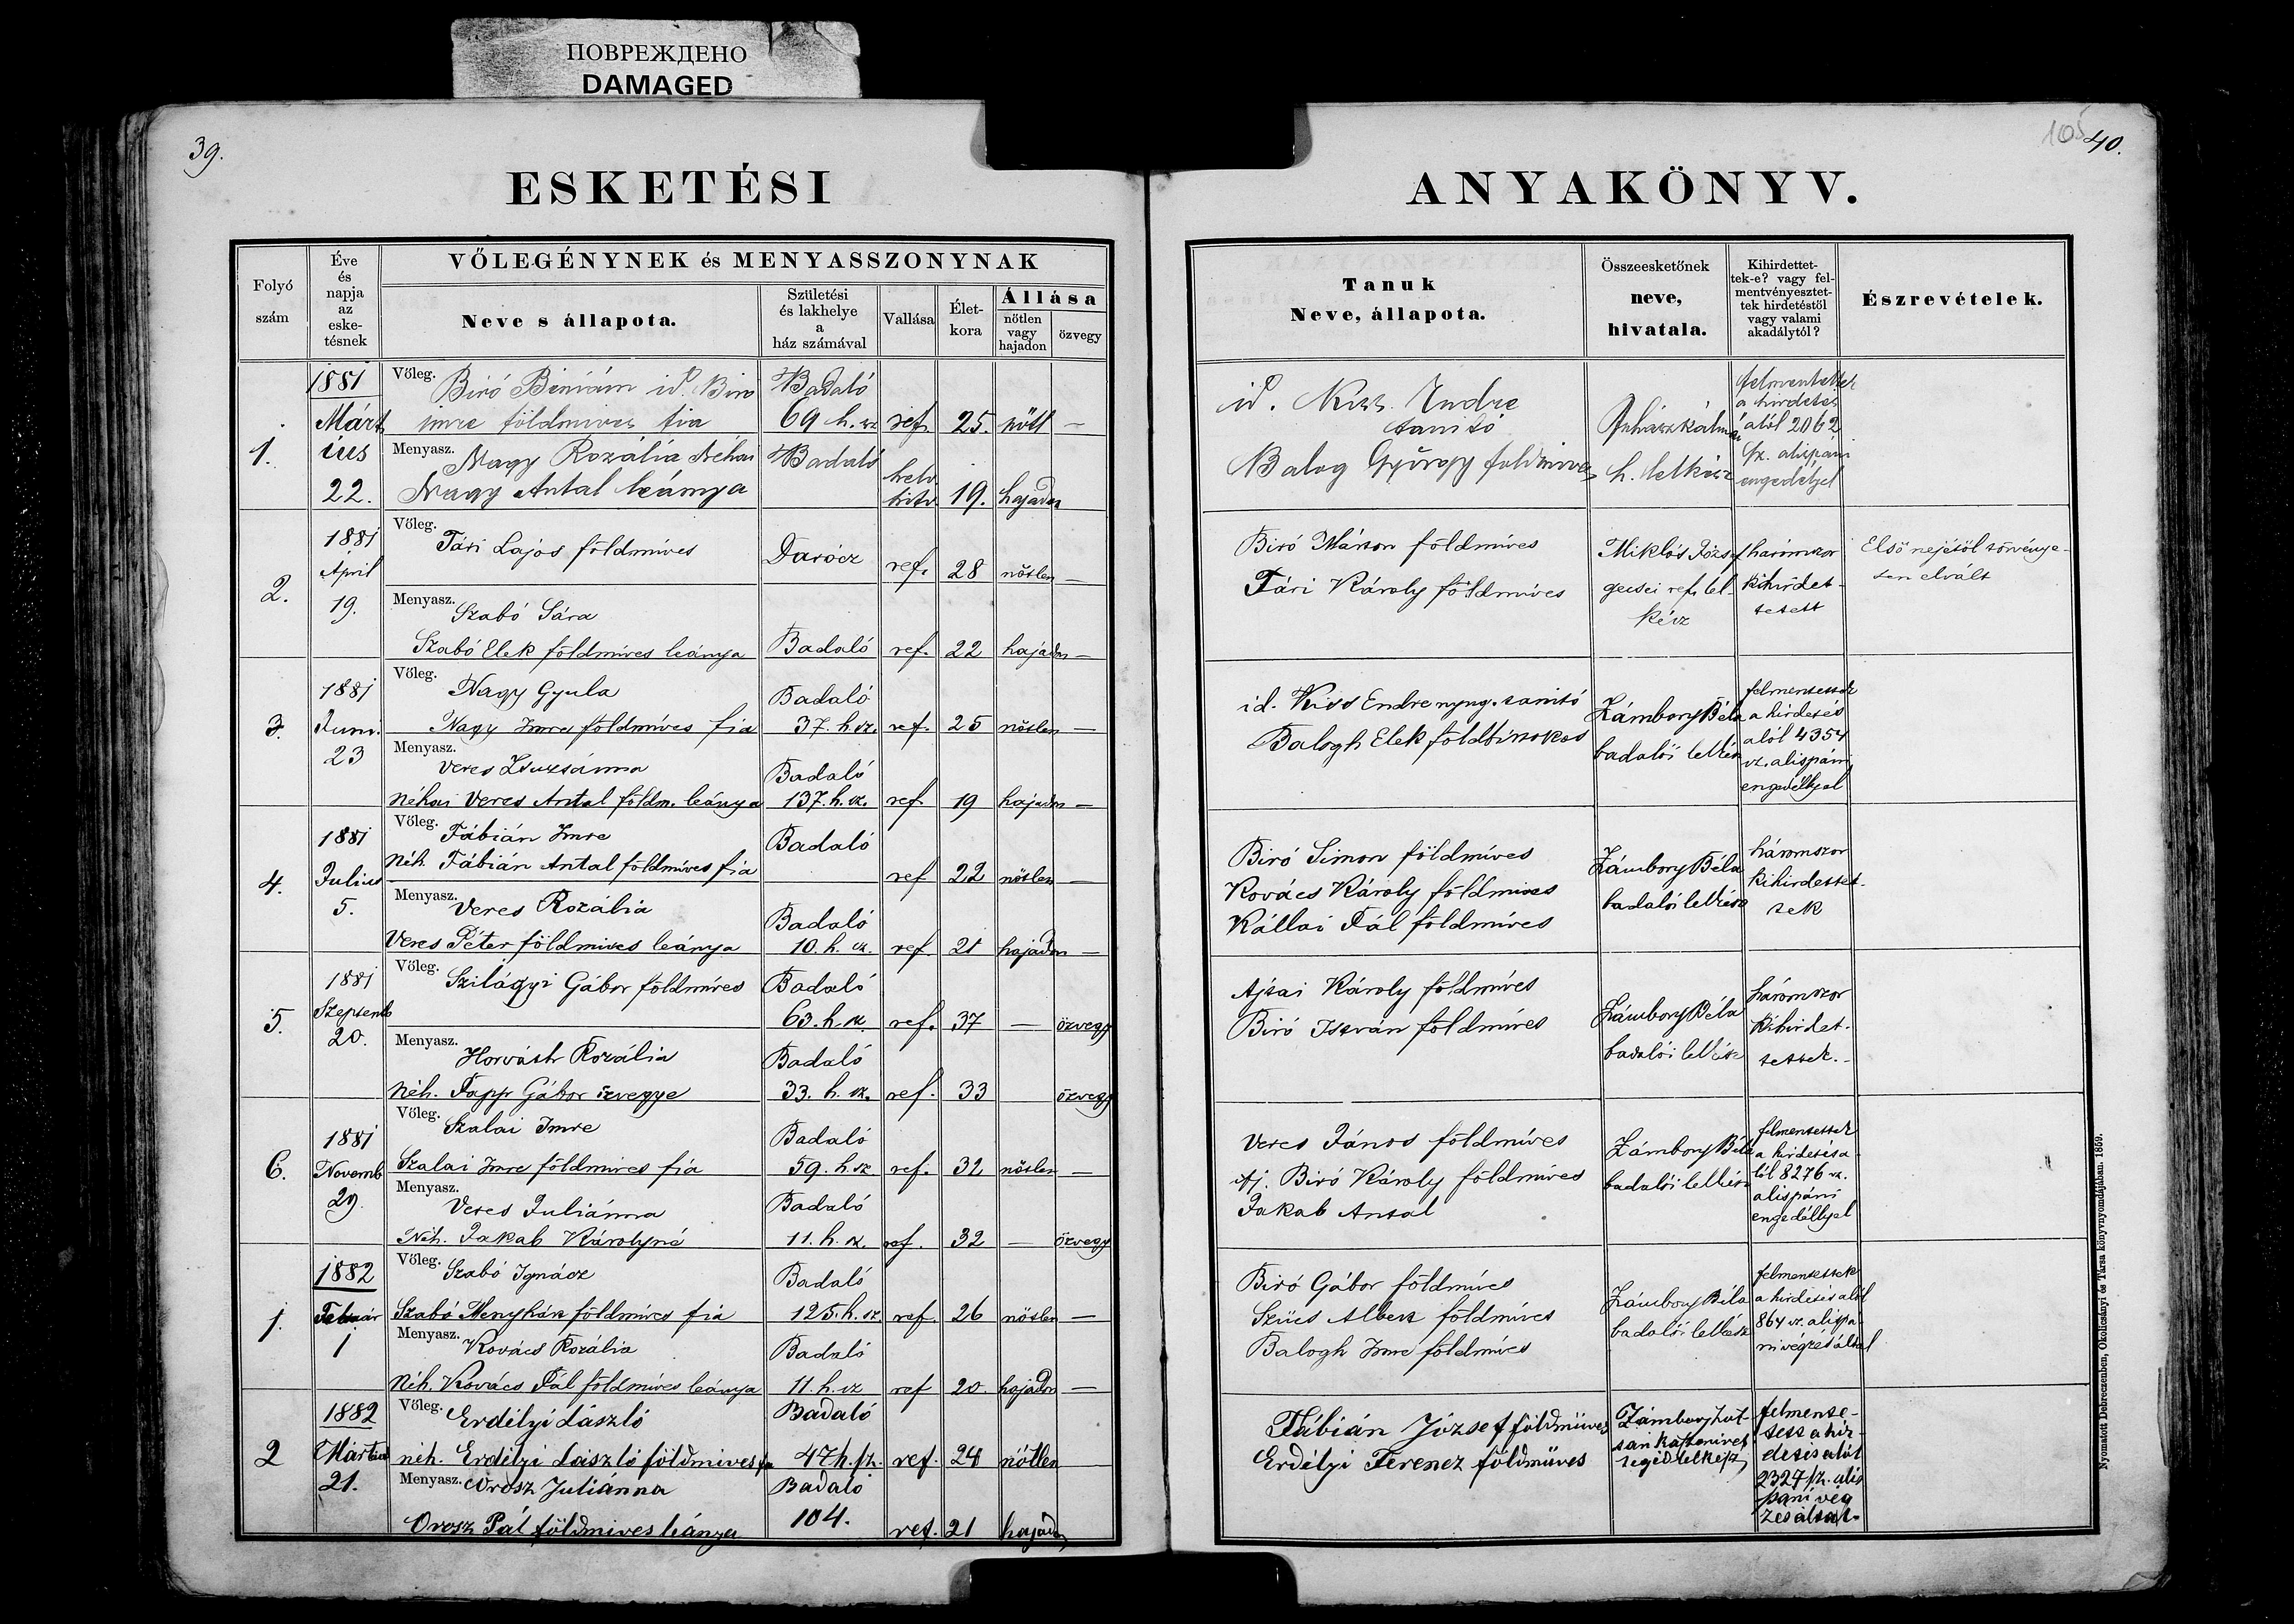 ПОВРЕЖДЕНО
DAMAGED
39.
105
40.
ESKETÉSI
ANYAKÖNYV.
Folyó
szám
Éve
és
napja
az
eske-
tésnek
VŐLEGÉNYNEK és MENYASSZONYNAK
Neve s állapota.
Születési
és lakhelye
a
ház számával
Vallása
Élet-
kora
Állása
nőtlen
vagy
hajadon
özvegy
Tanuk
Neve, állapota.
Összeesketőnek
neve,
hivatala.
Kihirdettet-
tek-e? vagy fel-
mentvényeztet-
tek hirdetéstől
vagy valami
akadálytól?
Észrevételek.
1.
1881
Márt
ius
22.
Vőleg.
Biró Biniám id. Biró
imre földmives fia
Badaló
69 h. sz
ref.
25.
nőtl
—
Menyasz.
Nagy Rozália Néhai
Nagy Antal leánya
Badaló
helv
hitv.
19.
hajadon
id. Kiss Endre
tanitó
Balog György földmives
h. lelkész
felmentettek
a hirdetés
alól 2062
sz. alispáni
engedélyel
2.
1881
April
19.
Vőleg.
Tári Lajos földmíves
Darócz
ref.
28
nőtlen
—
Menyasz.
Szabó Sára
Szabó Elek földmíves leánya
Badaló
ref.
22
hajadon
—
Biró Márton földmíves
Tári Károly földmíves
Miklós József
gecsei ref. lel-
kész
háromszor
kihirdet-
tetett
Első nejétől törvénye-
sen elvált
3.
1881
Juni.
23
Vőleg.
Nagy Gyula
Nagy Imre földmíves fia
Badaló
37. h. sz.
ref.
25
nőtlen
—
Menyasz.
Veres Zsuzsánna
néhai Veres Antal földm. leánya
Badaló
137. h. sz.
ref.
19
hajadon
—
id. Kiss Endre nyug. tanitó
Balogh Elek földbirtokos
Zámbory Béla
badalói lelkész
felmentettek
a hirdetés
alól 4354
sz. alispáni
engedéllyel
4.
1881
Julius
5.
Vőleg.
Fábián Imre
Néh. Fábián Antal földmíves fia
Badaló
ref
22
nőtlen
—
Menyasz.
Veres Rozália
Veres Péter földmives leánya
Badaló
10. h. sz.
ref.
21
hajadon
—
Biró Simon földmíves
Kovács Károly földmives
Kállai Pál földmíves
Zámbory Béla
badalói lelkész
háromszor
kihirdettet-
tek
5.
1881
Szeptemb
20.
Vőleg.
Szilágyi Gábor földmíves
Badaló
63. h. sz.
ref.
37
—
özvegy
Menyasz.
Horváth Rozália
Néh. Papp Gábor özvegye
Badaló
33. h. sz.
ref.
33
özvegy
Ajtai Károly földmíves
Biró István földmíves
Zámbory Béla
badalói lelkész
háromszor
kihirdet-
tettek.
6.
1881
Novemb
29.
Vőleg.
Szalai Imre
Szalai Imre földmíves fia
Badaló
59. h. sz
ref.
32
nőtlen
—
Menyasz.
Veres Juliánna
Néh. Jakab Károlyné
Badaló
11. h. sz.
ref.
32
—
özvegy
Veres János földmíves
ifj. Biró Károly földmíves
Jakab Antal
Zámbory Béla
badalói lelkész
felmentettek
a hirdetés a-
lól 8276 sz.
alispáni
engedéllyel
1.
1882
Február
1
Vőleg.
Szabó Ignácz
Szabó Menyhárt földmíves fia
Badaló
125. h. sz
ref.
26
nőtlen
—
Menyasz.
Kovács Rozália
Néh. Kovács Pál földmíves leánya
Badaló
11. h. sz
ref
20.
hajadon
—
Biró Gábor földmíves
Szücs Albert földmíves
Balogh Imre földmíves
Zámbory Béla
badalói lelkész
felmentettek
a hirdetés alól
864 sz. alispá-
ni végzés által
2
1882
Mártius
21.
Vőleg.
Erdélyi László
néh. Erdélyi László földmives fia
Badaló
47 h. sz.
ref.
24
nőtlen
Menyasz.
Orosz Juliánna
Orosz Pál földmives leánya
Badaló
104.
ref.
21
hajadon
Fábián József földmüves
Erdélyi Ferencz földmüves
segédlelkész
felmente-
tett a hir-
detés alól
2327 sz. alis
páni vég
zés által.
Nyomatott Debreczenben, Okolicsányi és Társa könyvnyomdájában. 1859.